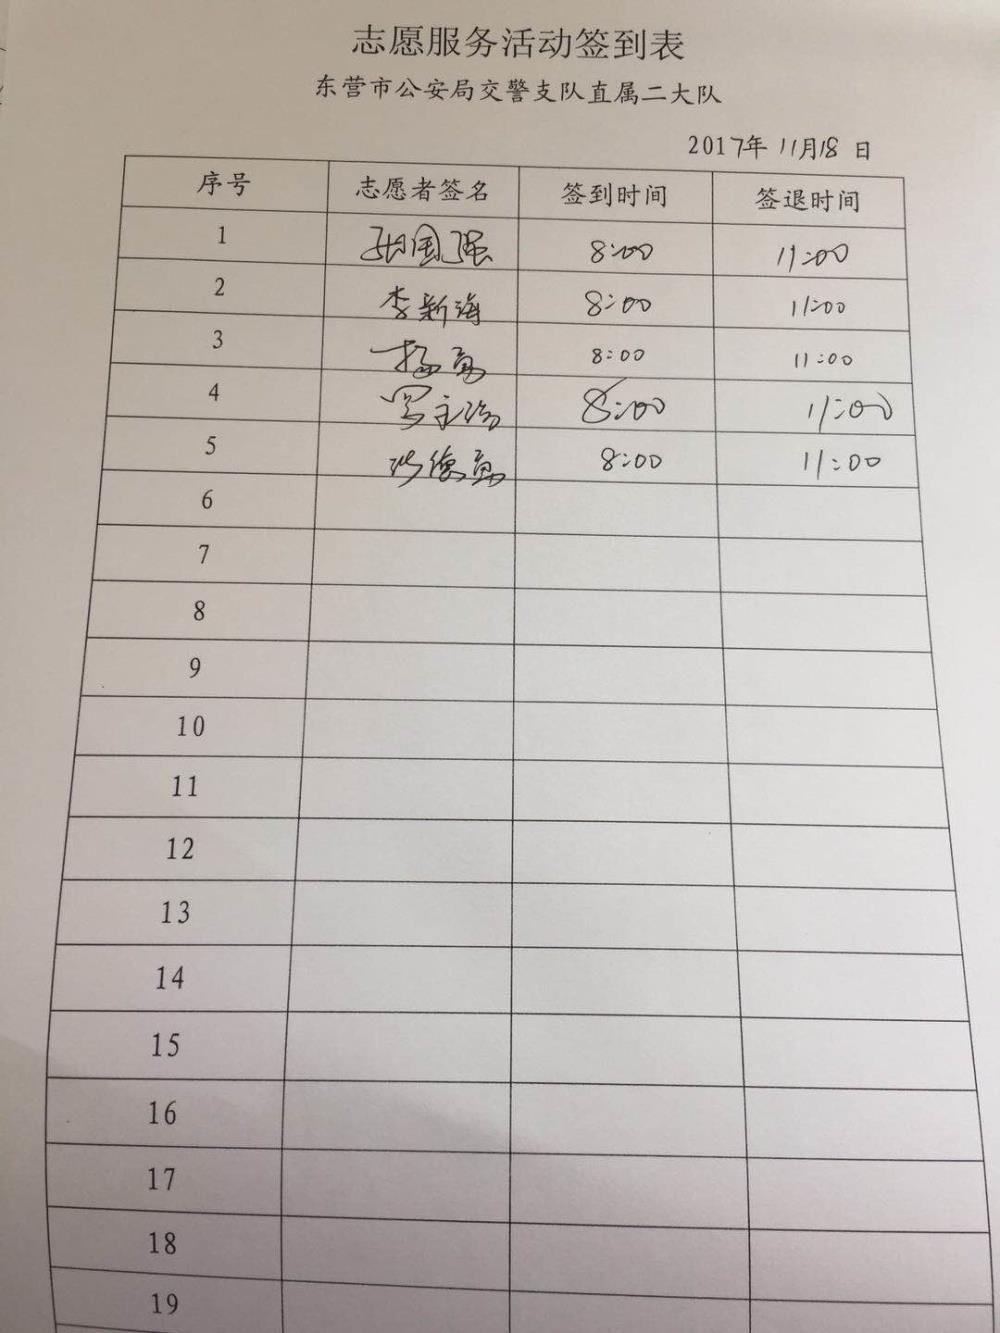 志愿服务活动签到表
东营市公安局交警支队直属二大队
2017年 11月18 日
序号 志愿者签名 签到时间 签退时间
1 张国强 8:00 11:00
2 李新海 8:00 11:00
3 8:00 11:00
4 8:00 11:00
5 8:00 11:00
6
7
8
9
10
11
12
13
14
15
16
17
18
19